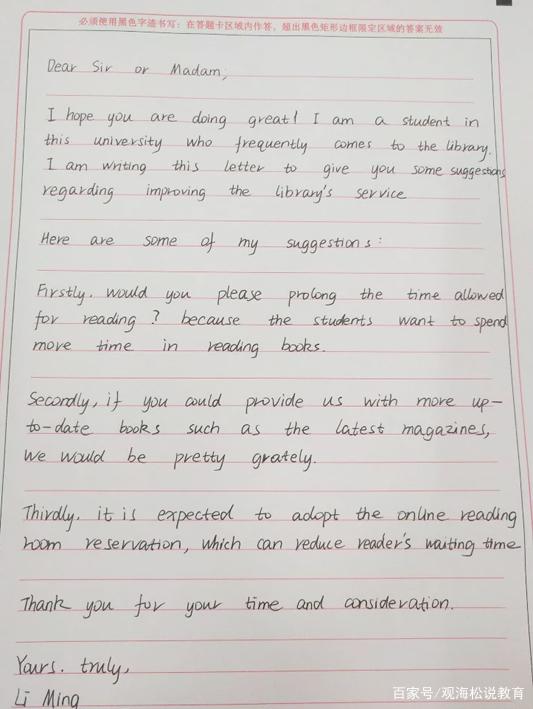 必须使用黑色字迹书写：在答题卡区域内作答，超出黑色矩形边框限定区域的答案无效
Dear Sir or Madam;
I hope you are doing great! I am a student in
this university who frequently comes to the library.
I am writing this letter to give you some suggestions
regarding improving the library's service
Here are some of my suggestions:
Firstly. would you please prolong the time allowed
for reading? because the students want to spend
more time in reading books.
Secordly, if you could provide us with more up-
to-date books such as the latest magazines,
we would be pretty grately.
Thirdly. it is expected to adopt the online reading
room reservation, which can reduce reader's waiting time
Thank you for your time and consideration.
Yours. truly,
Li Ming
百家号/观海松说教育